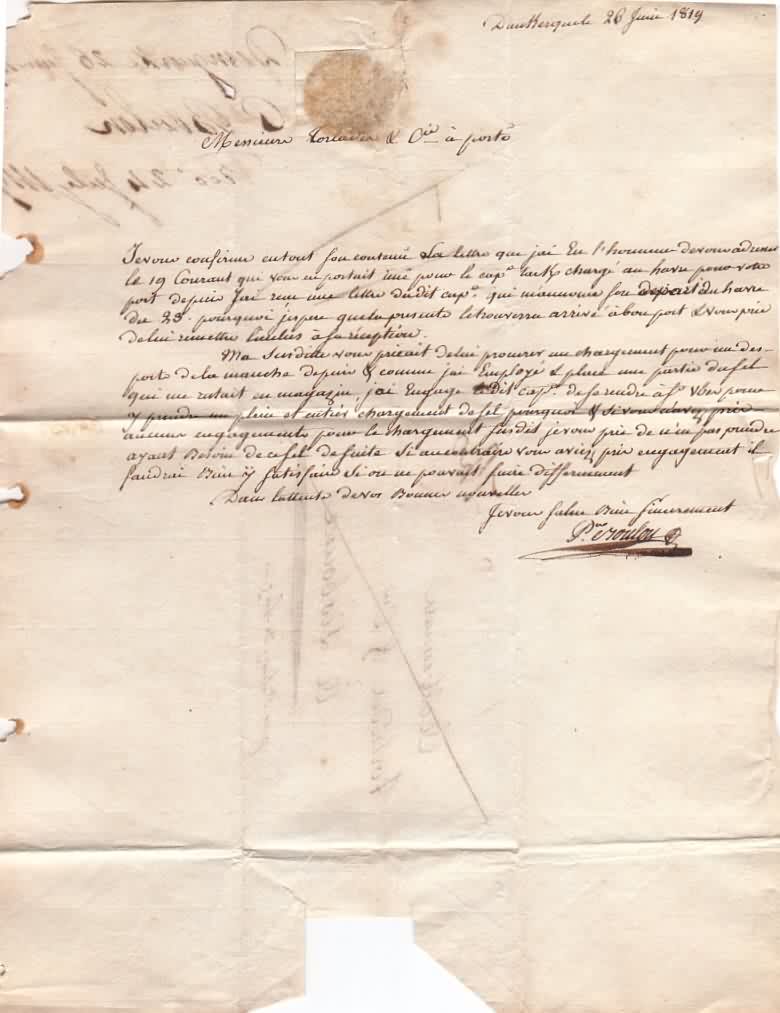 Dunkerque le 26 Juin 1819
Messieurs & Cie à porto
Je vous confirme en tout son contenu La lettre que jai Eu l'honneur de vous adresser
le 19 Courant qui vous en portait une pour le cap.e chargé au havre pour votre
port depuis J'ai reçu une lettre dudit cap.e qui m'annonce son depart du havre
du 23. pourquoi j'espere que la presente le trouverra arrivé à bon port & vous prie
de lui remettre L'incluse à sa réception.
Ma Susdite vous priait de lui procurer un chargement pour un des
ports de la manche depuis & comme jai Employé & placé une partie du sel
qui me restait en magazin, j'ai Engagé le Dit cap.e de se rendre à St Ubes pour
y prendre un plein et entier chargement de sel pourquoi & Si vous n'avez pris
aucuns engagements pour le chargement susdit je vous prie de n'en pas prendre
ayant Besoin de ce sel de suite Si au contraire vous aviez pris engagement il
faudrai Bien y Satisfaire Si on ne pouvait faire differemment
Dans l'attente de vos Bonnes nouvelles
Je vous salue Bien sincerement